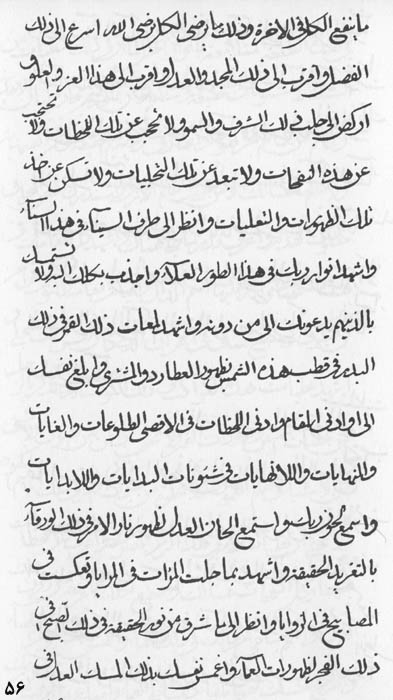 ما ينفع الكل فى الاخرة وذلك ما يرضى الكل برضى الله اسرع الى ذلك
الفضل و اقرب الى ذلك المجد والعدل و اقرب الى هذا العز والعلو و
اركض الى جلب ذلك الشرف والسمو ولا تحجب عن تلك اللحظات ولا تحتجب
عن هذه النفحات ولا تبعد عن تلك التجليات ولا تسكن عن اخذ
تلك الظهورات والتعليات وانظر الى طرف السيناء فى هذا السناء
واشهد انوار ربك فى هذا الطور العلاء واجذب بكلك اليه ولا تستمهل
بالذينهم يدعونك الى من دونه واشهد لمعات ذلك القمر فى ذلك
البدر فى قطب هذه الشمس بظهور العطارد والمشترى وابلغ نفسك
الى او ادنى المقام وادنى اللحظات فى الاقصى الطلوعات والغايات
والنهايات واللانهايات فى شئونات البدايات واللابدايات
واسمع لحون ربك واستمع الحان العدل لظهور نار الامر فى ذلك الورقاء
بالتغريد الحقيقة واشهد بما جلت المرات فى المرايا وتعكست فى
المصابيح فى الزوايا وانظر الى ما شرق من نور الحقيقة فى ذلك الصبح فى
ذلك الفجر لظهورات العماء واغمس نفسك بذلك المسك العدل فى
۵۶